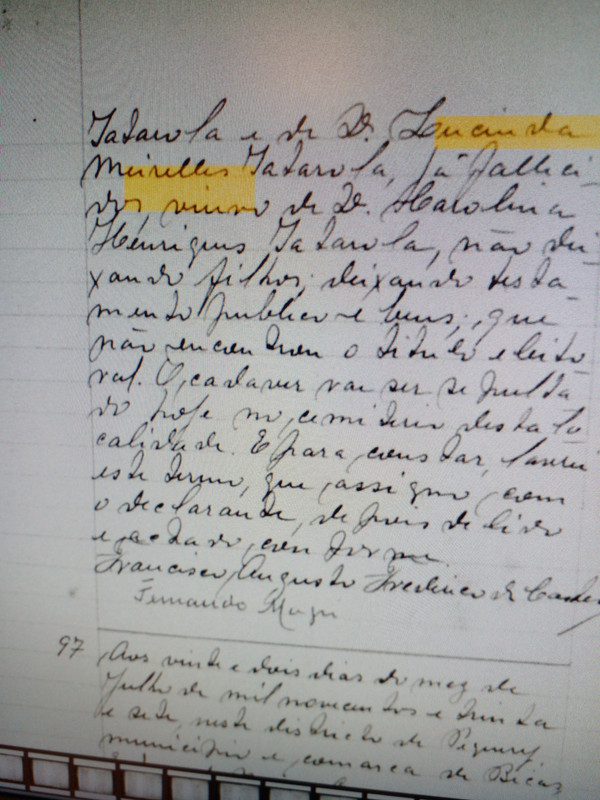 Tatarola e de D. Lucinda
Meirelles Tatarola, já falleci-
dos, viuvo de D. Carolina
Henriques Tatarola, não dei-
xando filhos; deixando testa-
mento publico e bens; que
não encontrou o titulo eleito-
ral. O cadaver vae ser sepulta-
do hoje no cemiterio desta lo-
calidade. E para constar, lavrei
este termo, que assigno com
o declarante, depois de lido
e achado conforme.
Francisco Augusto Frederico de
Fernando
97 Aos vinte e dois dias do mez de
Julho de mil novecentos e trinta
e sete, neste districto de Pequery
municipio e comarca de Bicas